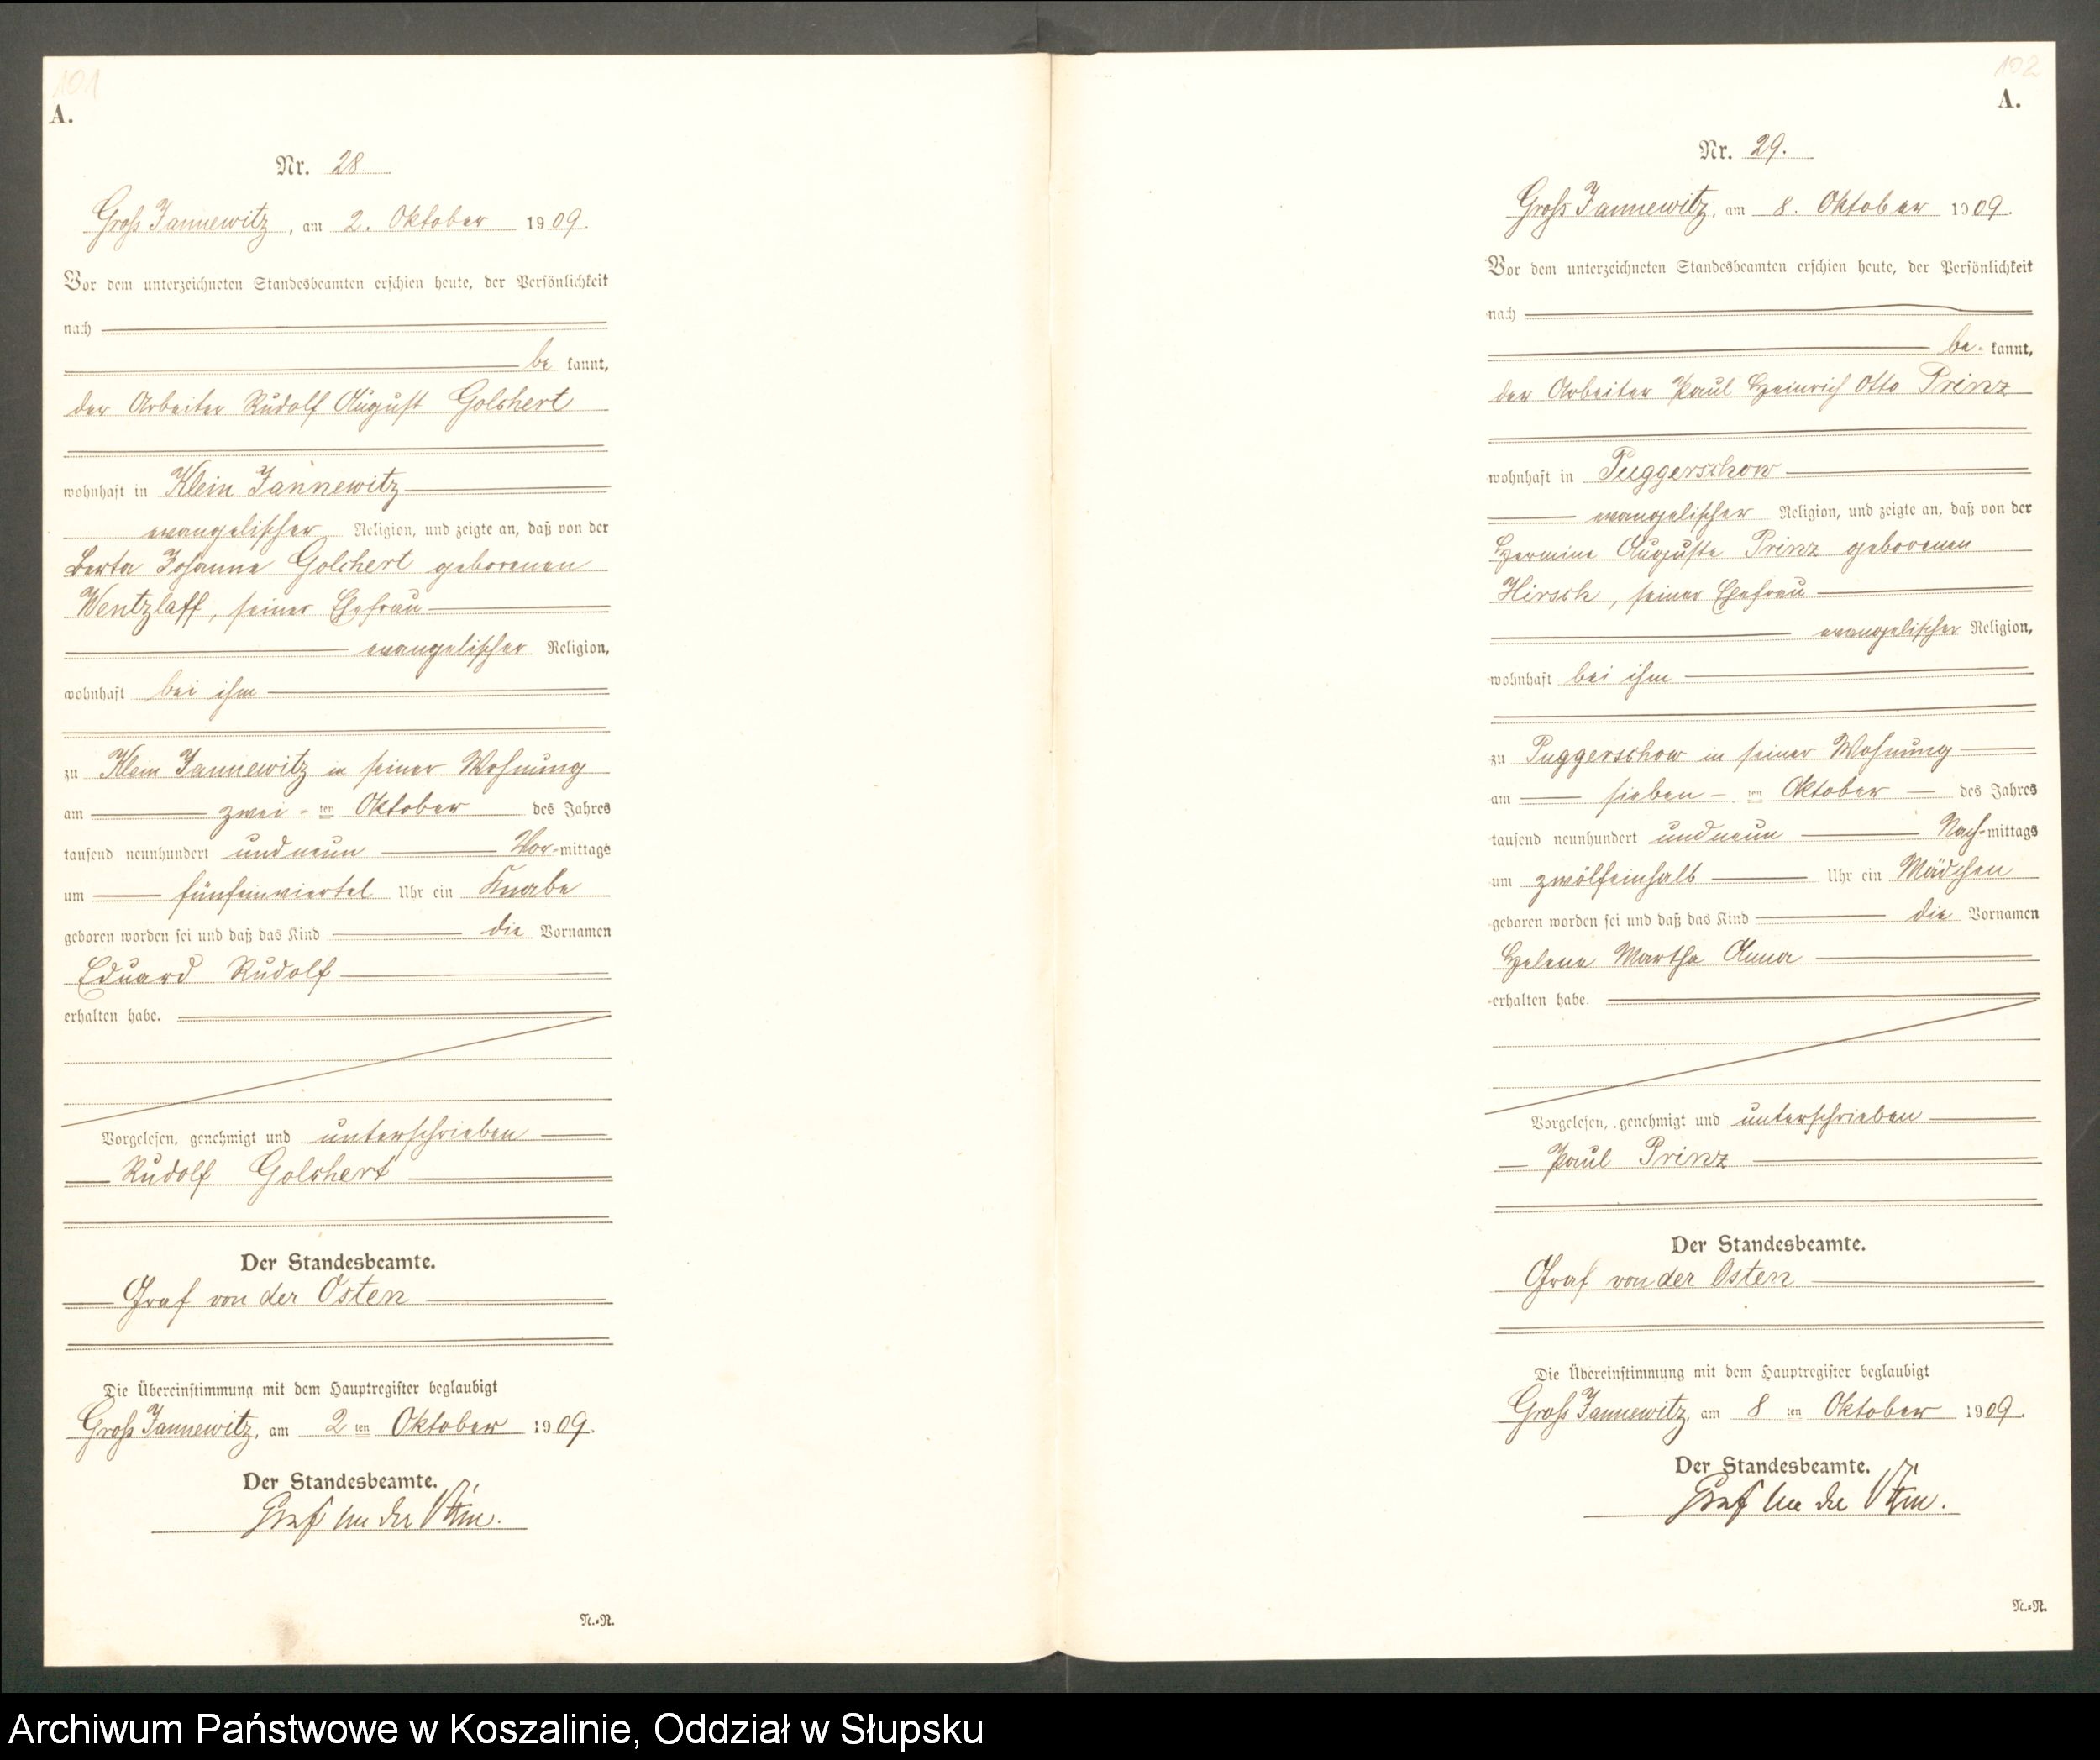 101
A.
Nr. 28
Groß Jannewitz, am 2. Oktober 1909.
Vor dem unterzeichneten Standesbeamten erschien heute, der Persönlichkeit
nach
be kannt,
der Arbeiter Rudolf August Golchert
wohnhaft in Klein Jannewitz
evangelischer Religion, und zeigte an, daß von der
Berta Johanne Golchert geborenen
Wentzlaff, seiner Ehefrau
evangelischer Religion,
wohnhaft bei ihm
zu Klein Jannewitz in seiner Wohnung
am zwei-ten Oktober des Jahres
tausend neunhundert undneun Vor-mittags
um fünfeinviertel Uhr ein Knabe
geboren worden sei und daß das Kind die Vornamen
Eduard Rudolf
erhalten habe.
Vorgelesen, genehmigt und unterschrieben
Rudolf Golchert
Der Standesbeamte.
Graf von der Osten
Die Übereinstimmung mit dem Hauptregister beglaubigt
Groß Jannewitz, am 2ten Oktober 1909.
Der Standesbeamte.
Graf von der Osten.
N.=R.
102
A.
Nr. 29.
Groß Jannewitz, am 8. Oktober 1909.
Vor dem unterzeichneten Standesbeamten erschien heute, der Persönlichkeit
nach
be- kannt,
der Arbeiter Paul Heinrich Otto Prinz
wohnhaft in Puggerschow
evangelischer Religion, und zeigte an, daß von der
Hermine Auguste Prinz geborenen
Hirsch, seiner Ehefrau
evangelischer Religion,
wohnhaft bei ihm
zu Puggerschow in seiner Wohnung
am sieben-ten Oktober des Jahres
tausend neunhundert undneun Nach-mittags
um zwölfeinhalb Uhr ein Mädchen
geboren worden sei und daß das Kind die Vornamen
Helene Martha Anna
erhalten habe.
Vorgelesen, genehmigt und unterschrieben
Paul Prinz
Der Standesbeamte.
Graf von der Osten
Die Übereinstimmung mit dem Hauptregister beglaubigt
Groß Jannewitz, am 8 ten Oktober 1909.
Der Standesbeamte.
Graf von der Osten.
N.=R.
Archiwum Państwowe w Koszalinie, Oddział w Słupsku